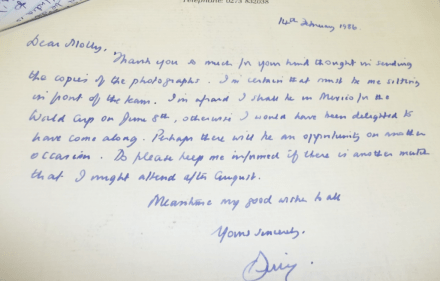 Telephone: 0273 832038
14th February 1986
Dear Molly,
Thank you so much for your kind thought in sending
the copies of the photographs. I'm certain that must be me sitting
in front of the team. I'm afraid I shall be in Mexico for the
World Cup on June 8th, otherwise I would have been delighted to
have come along. Perhaps there will be an opportunity on another
occasion. Do please keep me informed if there is another match
that I might attend after August.
Meantime my good wishes to all
Yours sincerely,